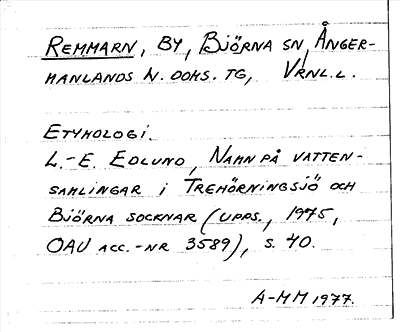 REMMARN, BY, BJÖRNA SN, ÅNGER-
MANLANDS N. DOMS. TG, VRNL.L.
ETYMOLOGI.
L.-E. EDLUND, NAMN PÅ VATTEN-
SAMLINGAR I TREHÖRNINGSJÖ OCH
BJÖRNA SOCKNAR (UPPS., 1975,
OAU ACC.-NR 3589), S. 40.
A-MM 1977.